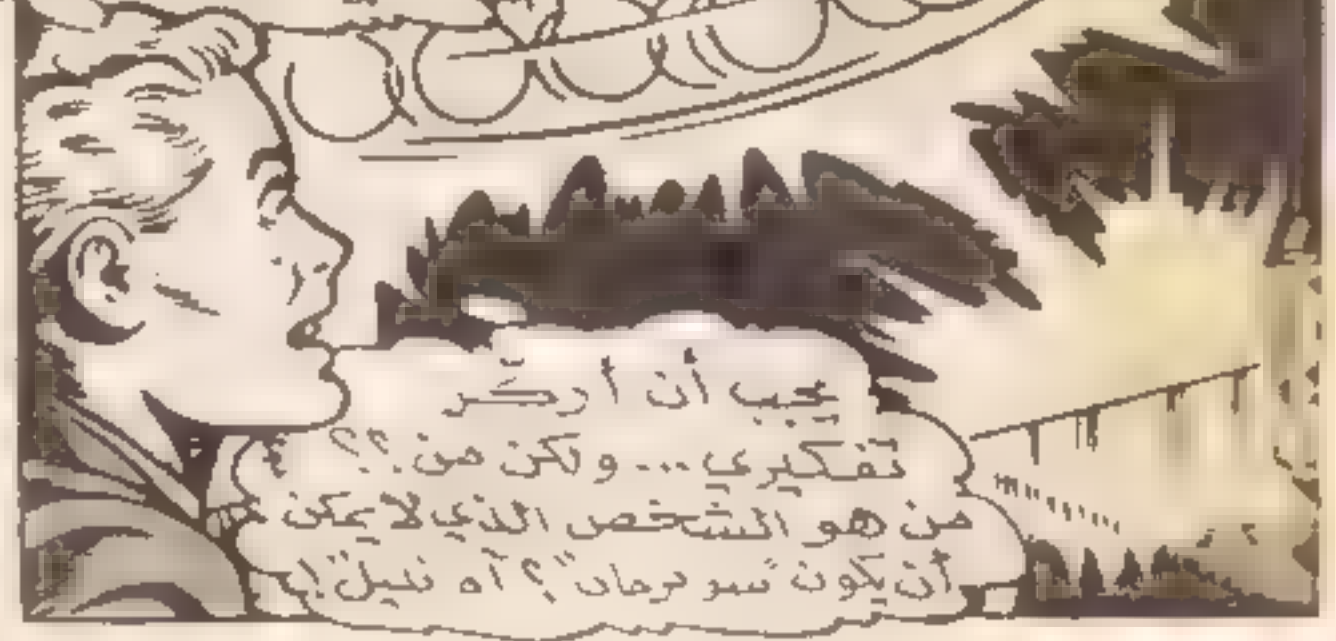 يجب أن أركّز
تفكيري... ولكن من؟؟
من هو الشخص الذي لا يمكن
أن يكون "سوبرمان"؟ آه نبيل"!